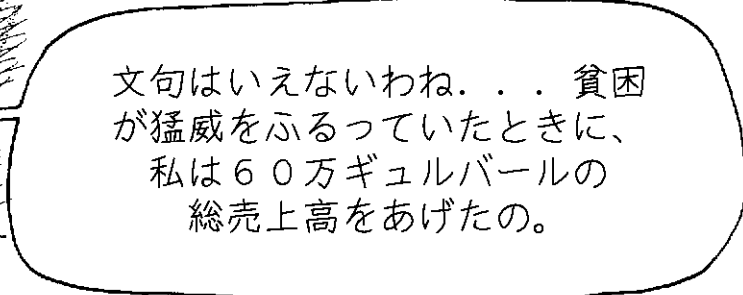 文句はいえないわね．．．貧困
が猛威をふるっていたときに、
私は６０万ギュルバールの
総売上高をあげたの。